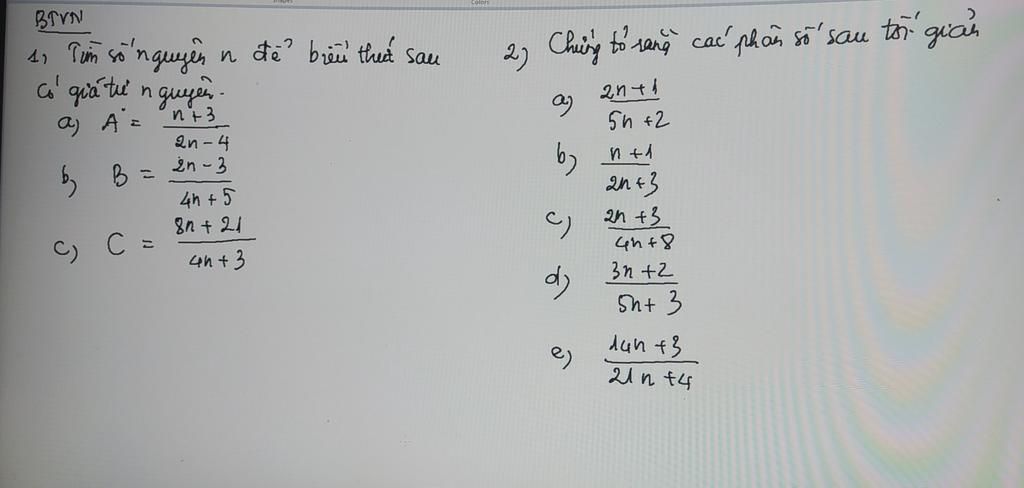 BTVN
1, Tìm số nguyên n để biểu thức sau
có giá trị nguyên.
a) A = n+3 / 2n-4
b) B = 2n-3 / 4n+5
c) C = 8n+21 / 4n+3
2) Chứng tỏ rằng các phân số sau tối giản
a) 2n+1 / 5n+2
b) n+1 / 2n+3
c) 2n+3 / 4n+8
d) 3n+2 / 5n+3
e) 14n+3 / 21n+4